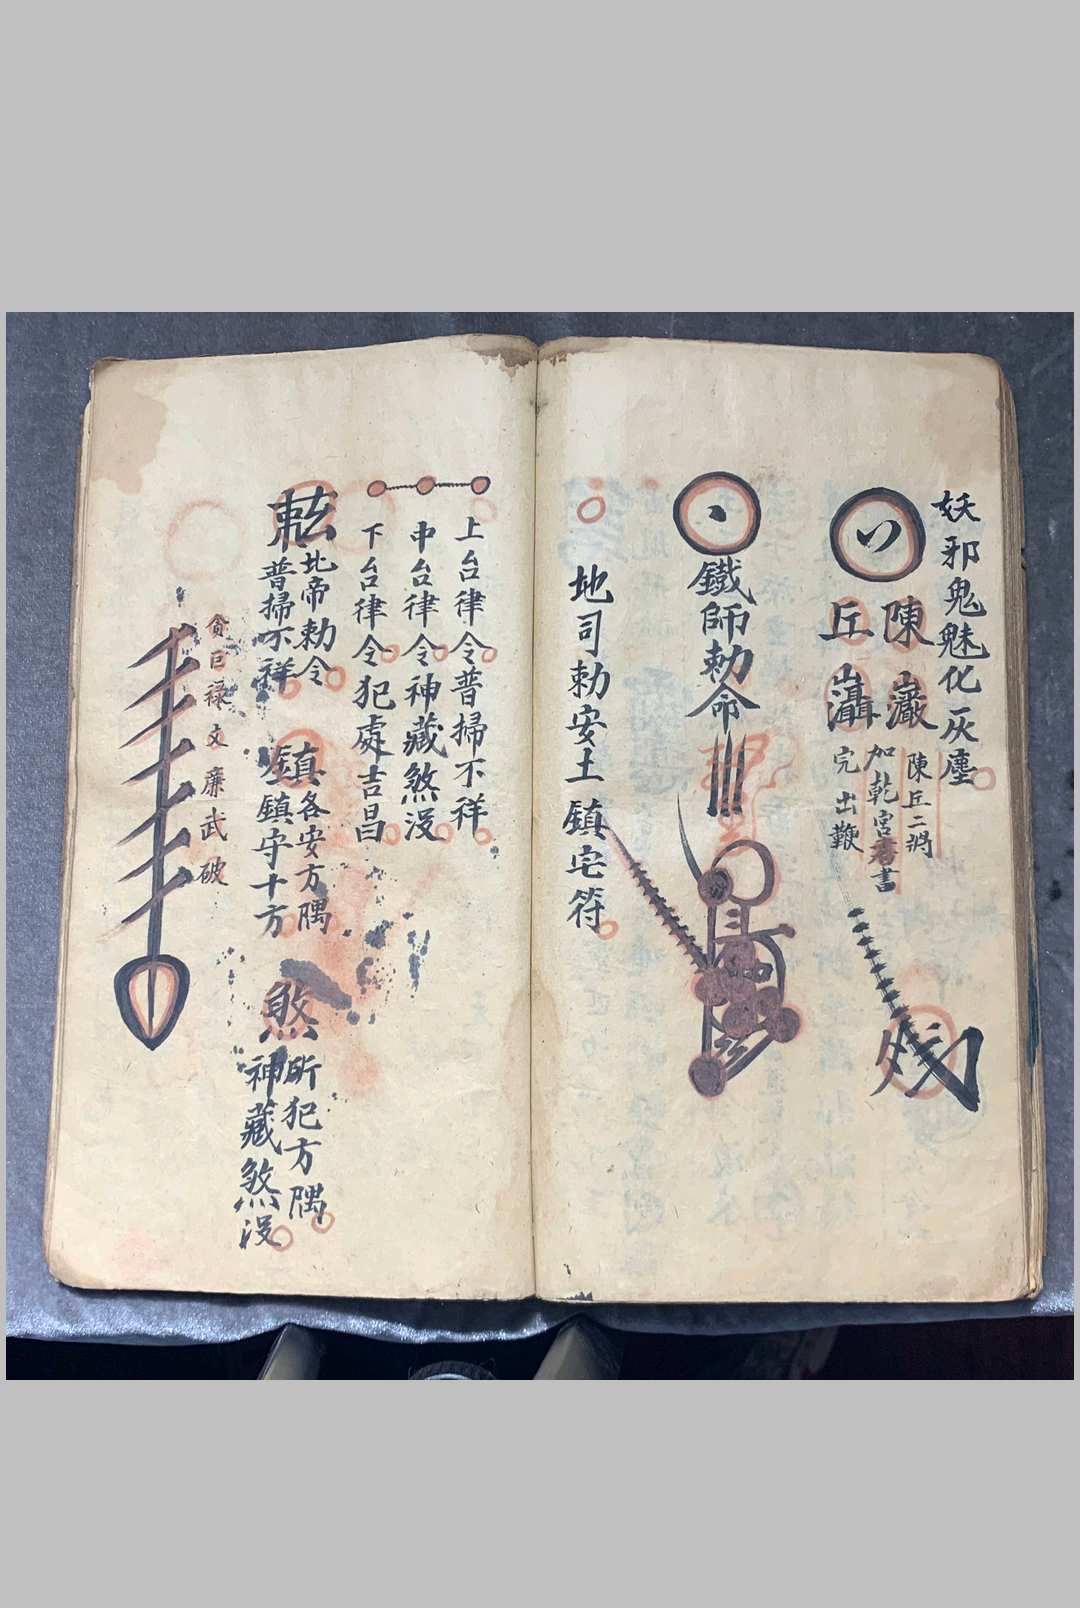 妖邪鬼魅化灰塵
陳巗
丘灄
陳丘二將
加乾宮書
完出鞭
鐵師勅命
地司勅安土鎮宅符
上台律令普掃不祥
中台律令神藏煞沒
下台律令犯處吉昌
北帝勅令
普掃不祥
鎮
各安方隅
鎮守十方
煞
所犯方隅
神藏煞沒
貪巨禄文廉武破